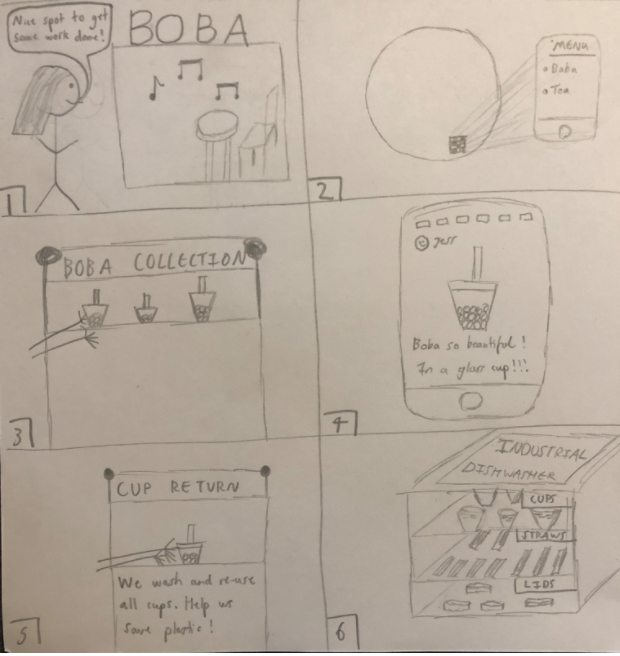 Nice spot to get
some work done!
BOBA
1
MENU
Boba
Tea
2
BOBA COLLECTION
3
Jess
Boba so beautiful!
In a glass cup!!!
4
CUP RETURN
We wash and re-use
all cups. Help us
save plastic!
5
INDUSTRIAL
DISHWASHER
CUPS
STRAWS
LIDS
6